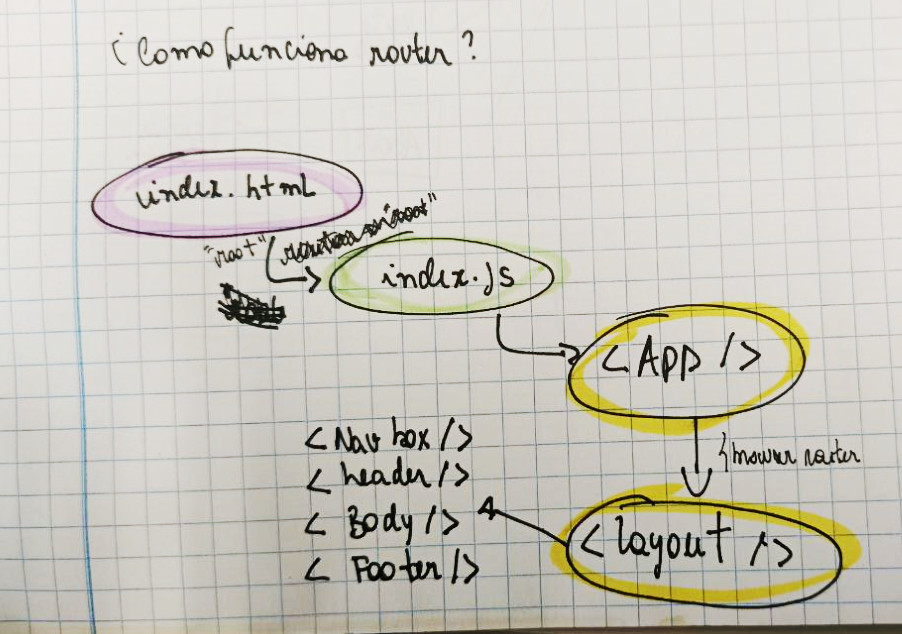 ¿Como funciona router?
index.html
"root"
"root"
index.js
< App />
browser router
< Nav box />
< header />
< Body />
< layout />
< Footer />